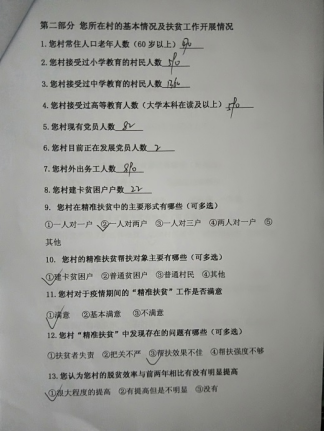 第二部分 您所在村的基本情况及扶贫工作开展情况
1.您村常住人口老年人数（60岁以上）
2.您村接受过小学教育的村民人数
3.您村接受过中学教育的村民人数
4.您村接受过高等教育人数（大学本科在读及以上）
5.您村现有党员人数 82
6.您村目前正在发展党员人数 2
7.您村外出务工人数
8.您村建卡贫困户户数 22
9. 您村在精准扶贫中的主要形式有哪些（可多选）
①一人对一户 ②一人对两户 ③一人对三户 ④两人对一户 ⑤
其他
10. 您村的精准扶贫帮扶对象主要有哪些（可多选）
①建卡贫困户 ②普通贫困户 ③普通村民 ④其他
11.您村对于疫情期间的“精准扶贫”工作是否满意
①满意 ②基本满意 ③不满意
12.您村“精准扶贫”中发现存在的问题有哪些（可多选）
①扶贫者失责 ②把关不严 ③帮扶效果不佳 ④帮扶强度不够
13.您认为您村的脱贫效率与前两年相比有没有明显提高
①很大程度的提高 ②有提高但是不明显 ③没有